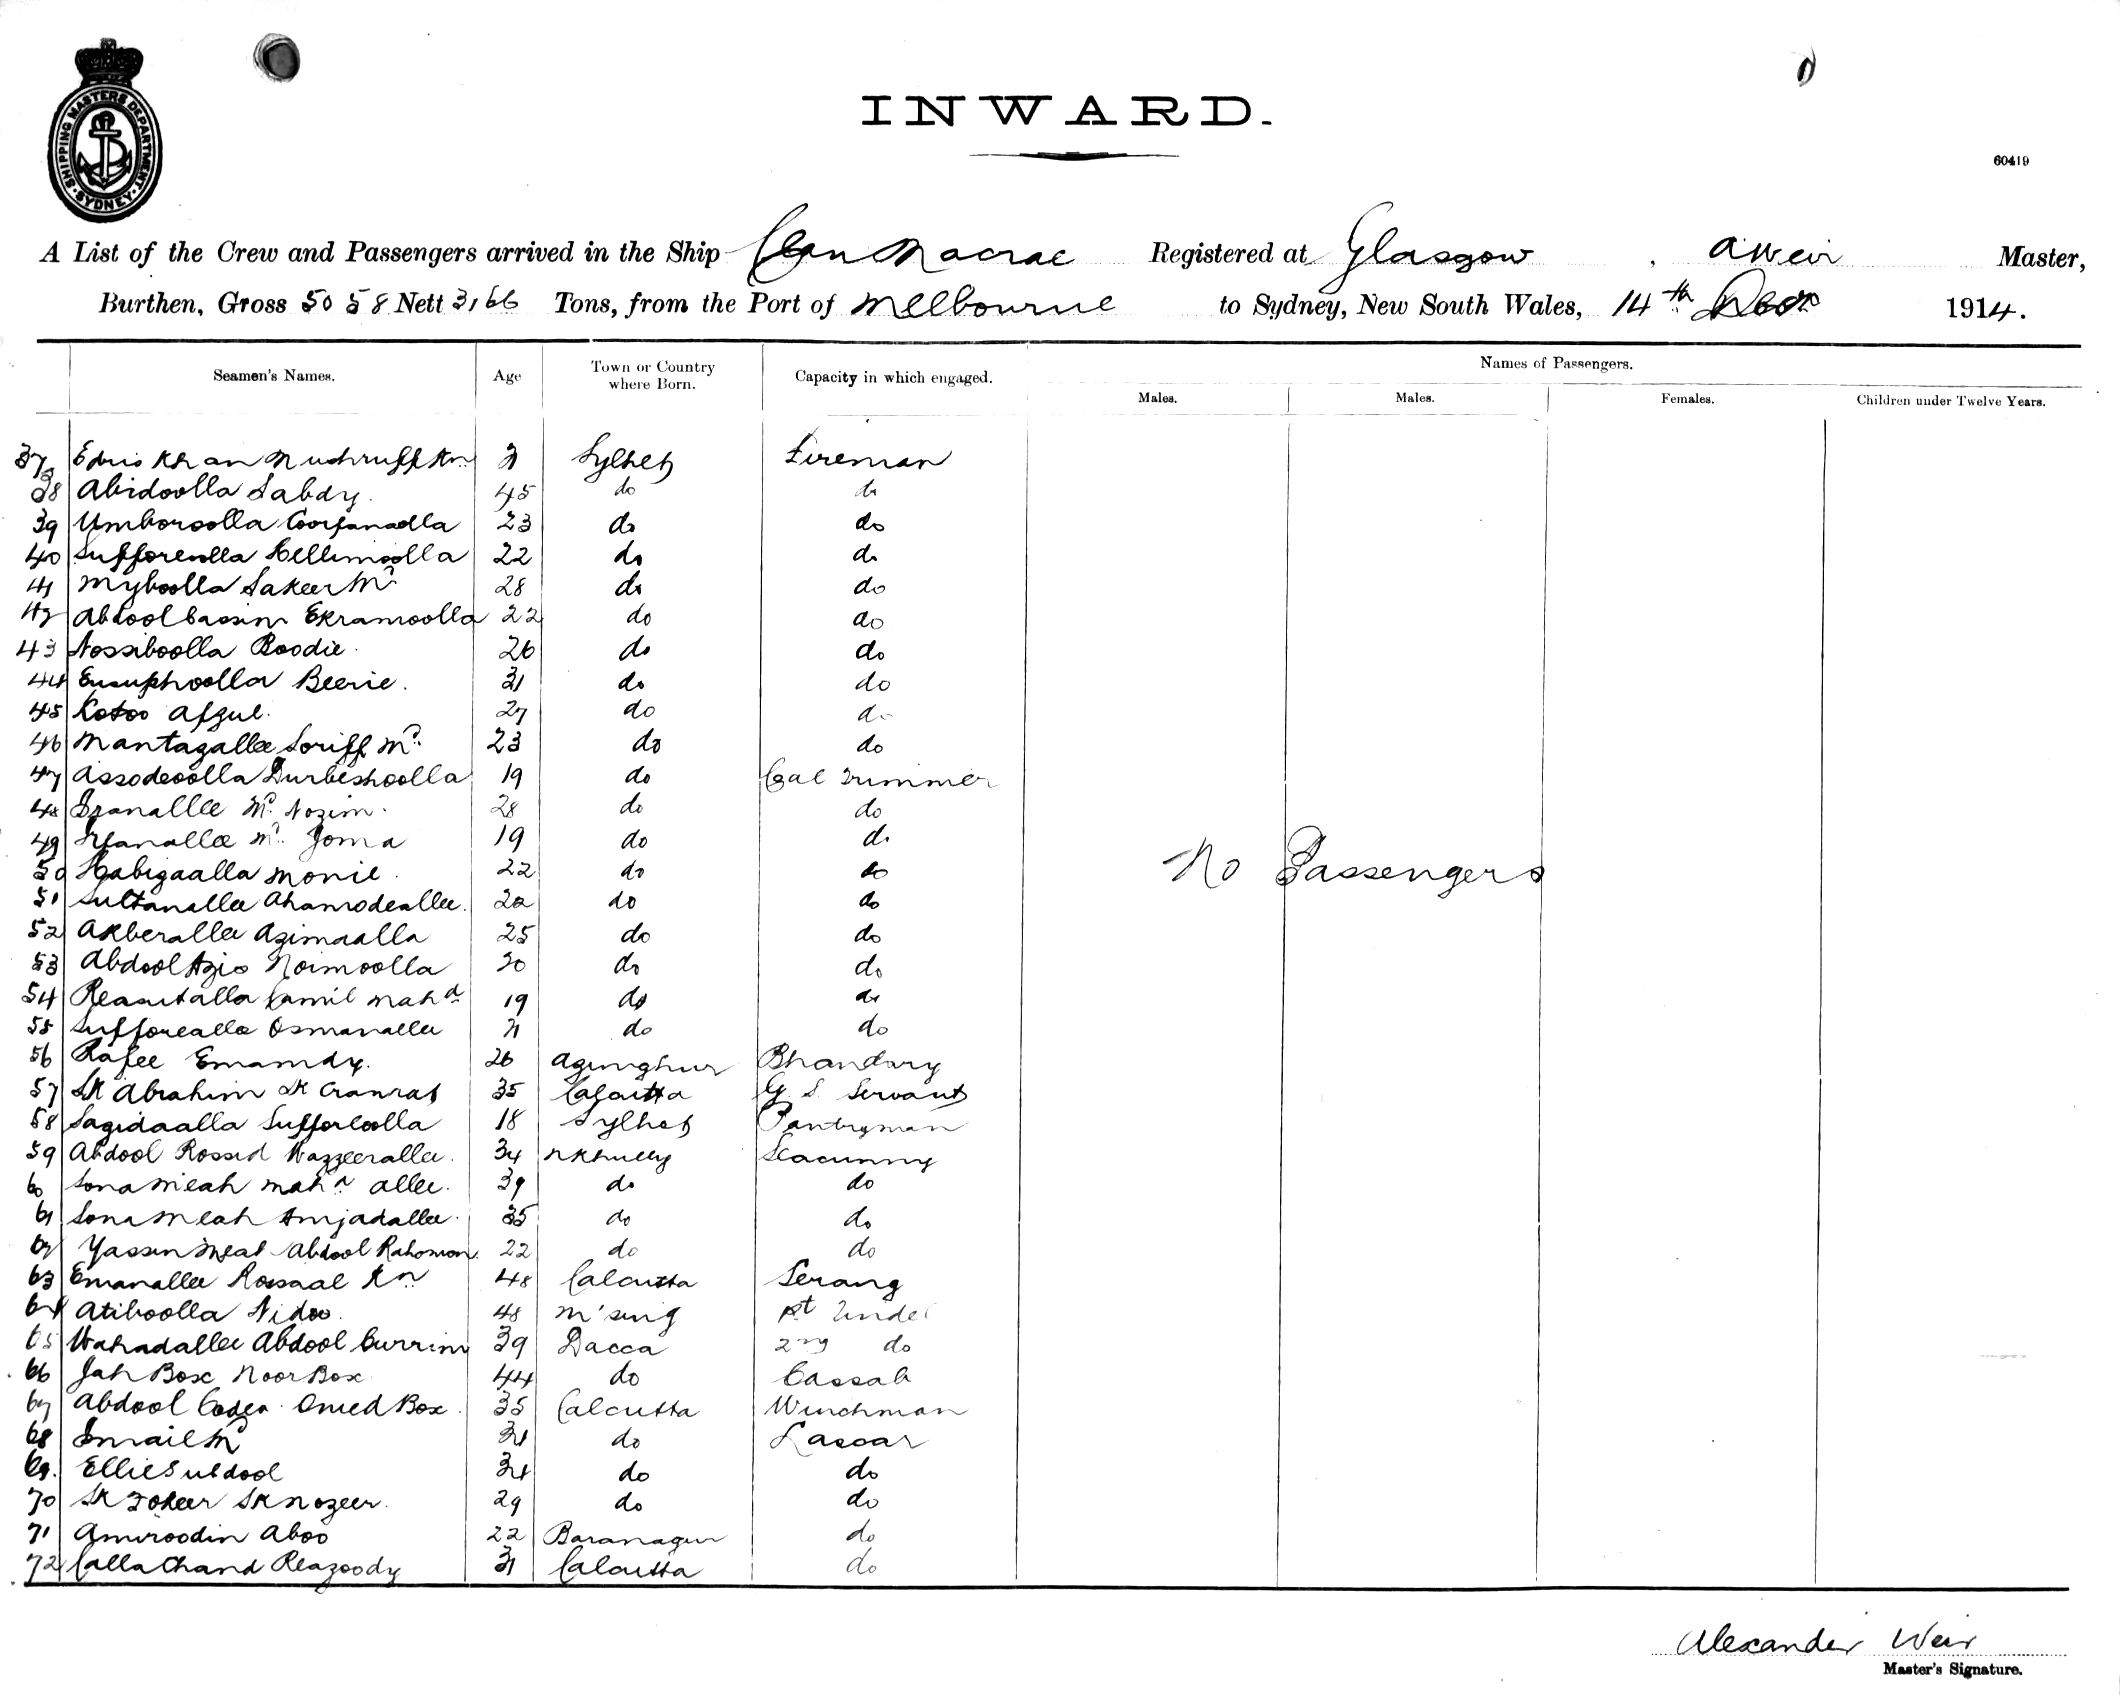 SHIPPING MASTERS DEPARTMENT. SYDNEY
INWARD.
60419
A List of the Crew and Passengers arrived in the Ship Clan Macrae Registered at Glasgow, A Weir Master,
Burthen, Gross 5058 Nett 3166 Tons, from the Port of Melbourne to Sydney, New South Wales, 14th 1914.
Seamen's Names. Age Town or Country where Born. Capacity in which engaged. Names of Passengers.
Males. Males. Females. Children under Twelve Years.
37 Edris Khan Mudhruff Kn Sylhet Fireman
38 Abidoolla Sabdy. 45 do do
39 Umboroolla 23 do do
40 Sufforeolla 22 do do
41 Myboolla Sakeer Md 28 do do
42 Abdool Cassim Ekramoolla 22 do do
43 Nossiboolla Boodie 26 do do
44 Eusuphoolla Beerie. 31 do do
45 Kotoo Afzul. 27 do do
46 Mantazallee Soriff Md. 23 do do
47 Assodeoolla Durbeshoolla 19 do Coal Trimmer
48 Md. Nozim. 28 do do
49 Irfanallee Md. Joma 19 do do
50 Monie. 22 do do
No Passengers
51 Sultanallee Ahamodeallee. 20 do do
52 Akberallee Azimaalla 25 do do
53 Abdool Azis Noimoolla 20 do do
54 Kamil Mahd 19 do do
55 Sufforeallee Osmanallee 21 do do
56 Rafee Emamdy. 26 Azimghur Bhandary
57 Sk Abrahim Sk 35 Calcutta G S Servant
58 Sagidaalla Sufforeolla 18 Sylhet Pantryman
59 Abdool Rossid Wazzeerallee. 34 Seacunny
60 Sona Meah Mahd Allee. 39 do do
61 Sona Meah Amjadallee. 35 do do
62 Yassin Meah Abdool Rahoman. 22 do do
63 Emanallee Rossaal Kn 48 Calcutta Serang
64 Atiboolla Nidoo. 48 M'sing 1st Tindel
65 Wahadallee Abdool Currim 39 Dacca 2nd do
66 Jah Box Noor Box 44 do Cassab
67 Abdool Cader Omed Box. 35 Calcutta Winchman
68 Ismail Md do Lascar
69. Ellie Suldool do do
70 Sk Fokeer Sk Nozeer. 29 do do
71 Amiroodin Aboo 22 Baranagur do
72 Calla Chand Reazoody 31 Calcutta do
Alexander Weir
Master's Signature.